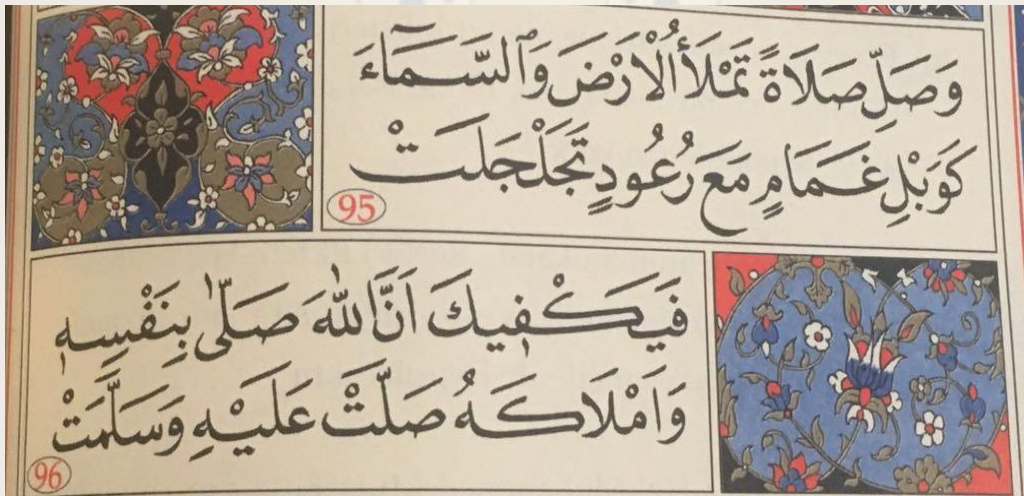 وَصَلِّ صَلَاةً تَمْلَأُ الْاَرْضَ وَالسَّمَآءَ
كَوَبْلِ غَمَامٍ مَعَ رُعُودٍ تَجَلْجَلَتْ
95
فَيَكْفِيكَ اَنَّ اللّٰهَ صَلّٰى بِنَفْسِهِ
وَاَمْلَاكَهُ صَلَّتْ عَلَيْهِ وَسَلَّمَتْ
96